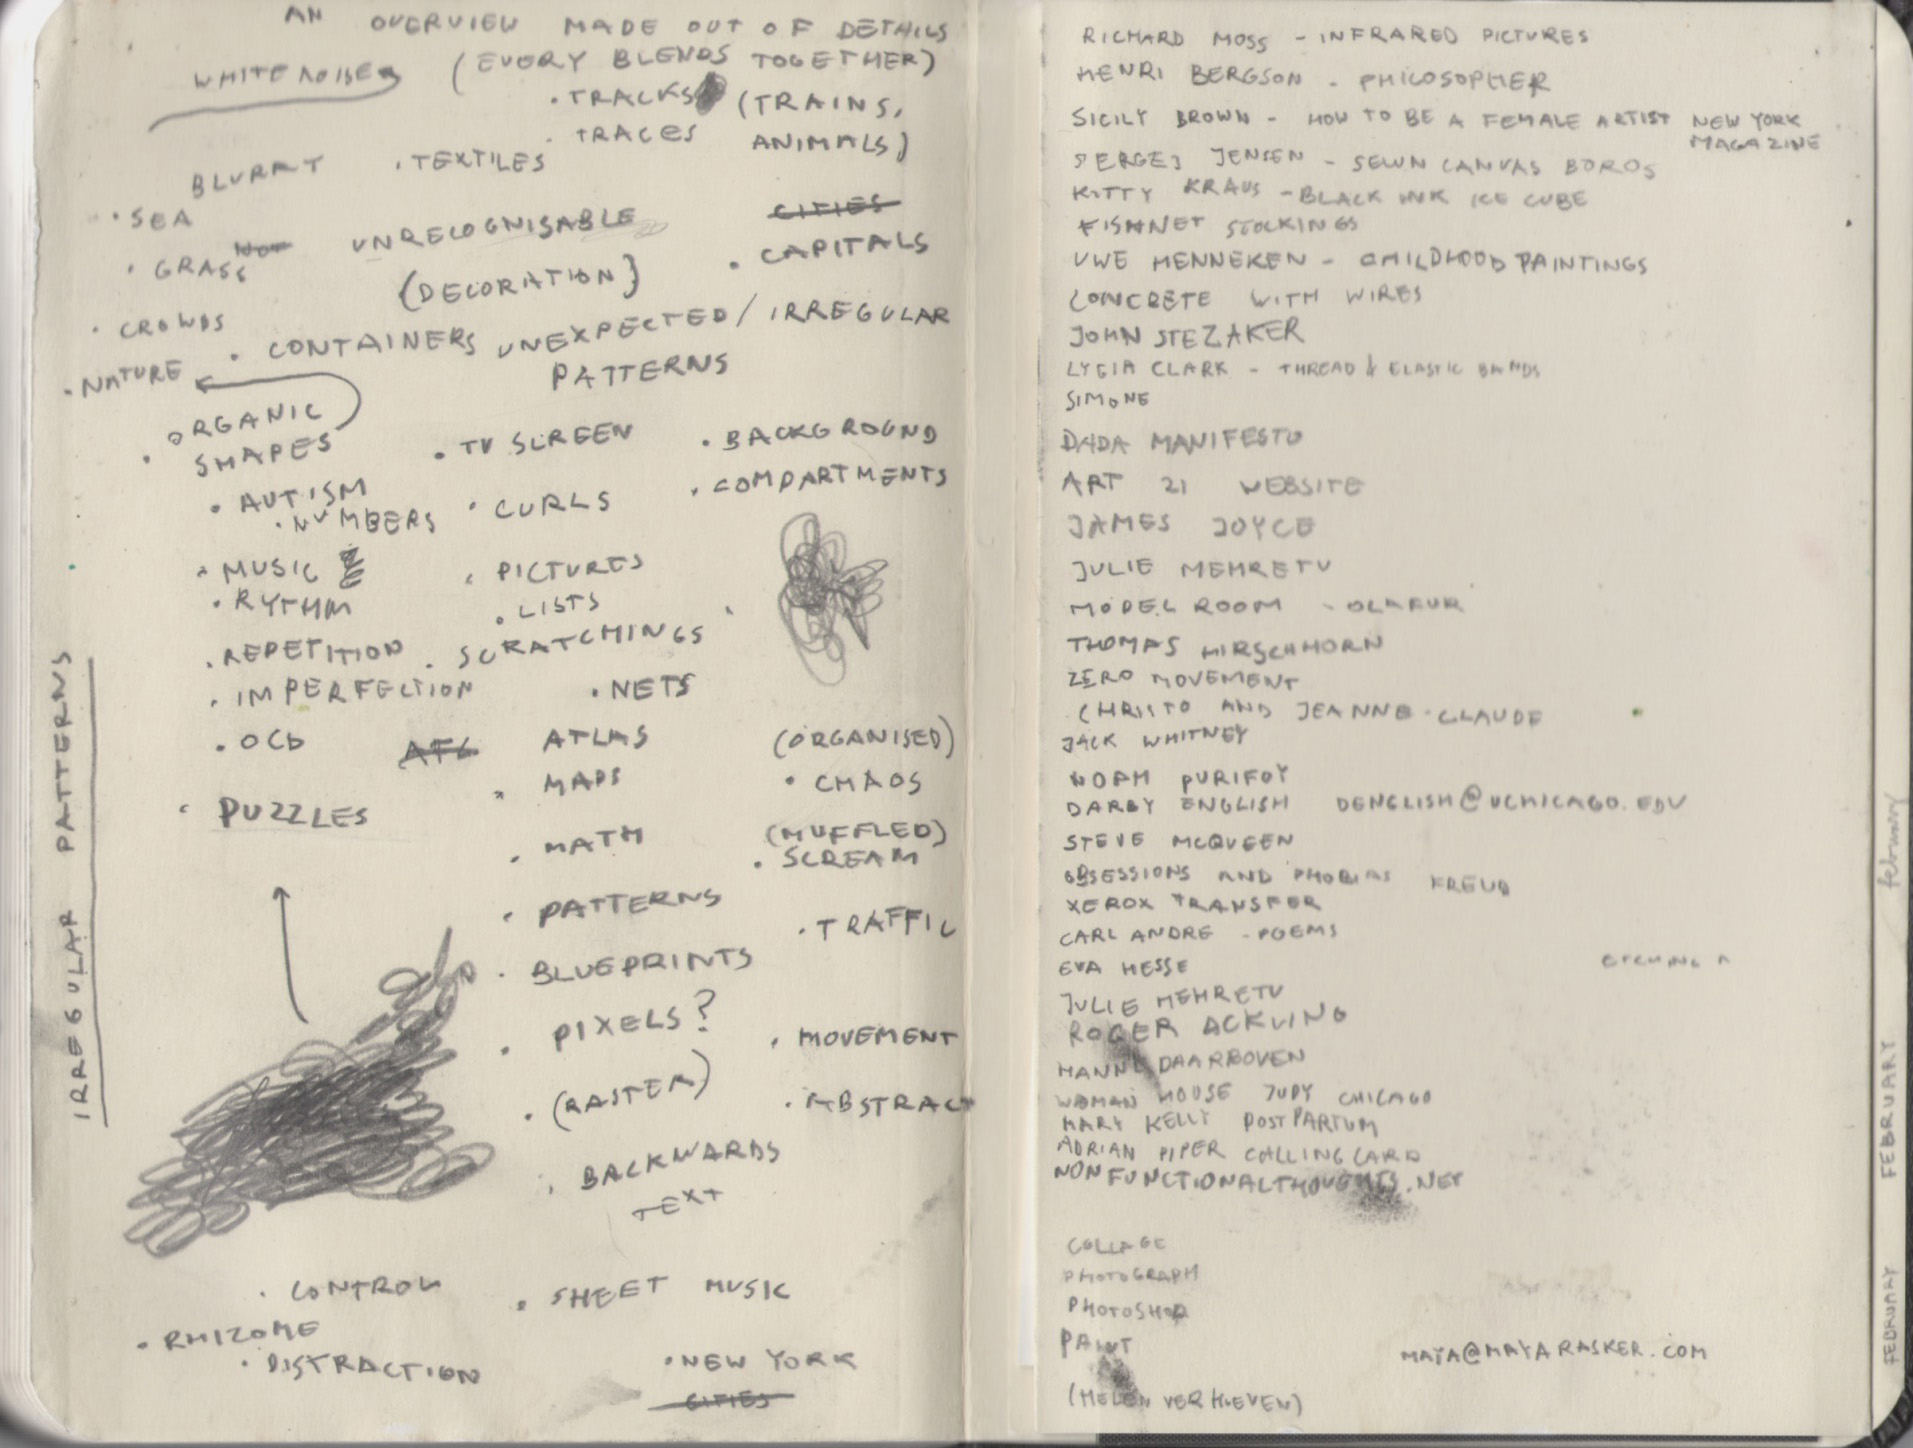 AN OVERVIEW MADE OUT OF DETAILS
WHITE NOISE (EVERY BLENDS TOGETHER)
· TRACKS (TRAINS,
· TRACES ANIMALS)
BLURRY · TEXTILES
· SEA
CITIES
· GRASS NOT UNRECOGNISABLE
· CAPITALS
(DECORATION)
· CROWDS
· CONTAINERS UNEXPECTED / IRREGULAR
PATTERNS
· NATURE
· ORGANIC
SHAPES
· TV SCREEN · BACKGROUND
· AUTISM · COMPARTMENTS
· NUMBERS · CURLS
· MUSIC · PICTURES
· RYTHM · LISTS
· REPETITION · SCRATCHINGS
· IMPERFECTION · NETS
· OCD ATL ATLAS (ORGANISED)
· MAPS · CHAOS
· PUZZLES
· MATH (MUFFLED)
· SCREAM
· PATTERNS
· TRAFFIC
· BLUEPRINTS
· PIXELS? · MOVEMENT
· (RASTER) · ABSTRACT
· BACKWARDS
TEXT
· CONTROL · SHEET MUSIC
· RHIZOME
· DISTRACTION · NEW YORK
CITIES
IRREGULAR PATTERNS
RICHARD MOSS - INFRARED PICTURES
HENRI BERGSON - PHILOSOPHER
SICILY BROWN - HOW TO BE A FEMALE ARTIST NEW YORK
MAGAZINE
SERGEJ JENSEN - SEWN CANVAS BOROS
KITTY KRAUS - BLACK INK ICE CUBE
FISHNET STOCKINGS
UWE HENNEKEN - CHILDHOOD PAINTINGS
CONCRETE WITH WIRES
JOHN STEZAKER
LYGIA CLARK - THREAD & ELASTIC BANDS
SIMONE
DADA MANIFESTO
ART 21 WEBSITE
JAMES JOYCE
JULIE MEHRETU
MODEL ROOM - OLAFUR
THOMAS HIRSCHHORN
ZERO MOVEMENT
CHRISTO AND JEANNE-CLAUDE
JACK WHITNEY
NOAH PURIFOY
DARBY ENGLISH DENGLISH@UCHICAGO.EDU
STEVE MCQUEEN
OBSESSIONS AND PHOBIAS FREUD
XEROX TRANSFER
CARL ANDRE - POEMS
EVA HESSE
JULIE MEHRETU
ROGER ACKLING
HANNE DAARBOVEN
WOMAN HOUSE JUDY CHICAGO
MARY KELLY POSTPARTUM
ADRIAN PIPER CALLING CARD
NONFUNCTIONALTHOUGHTS.NET
COLLAGE
PHOTOGRAPH
PHOTOSHOP
PAINT
MAYA@MAYARASKER.COM
(HELEN VERHOEVEN)
february
FEBRUARY
FEBRUARY